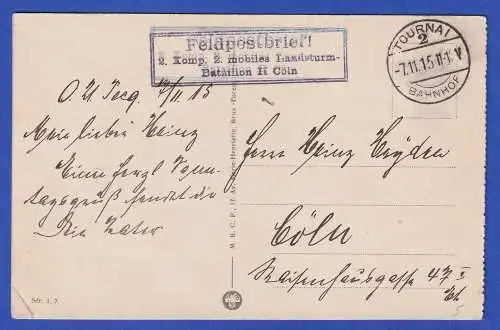 Feldpostbrief!
2. Komp. 2. mobiles Landsturm-
Bataillon II Cöln
TOURNAI
2
-7.11.15.11-1. V
BAHNHOF
O. U. 7/11 15
Mein lieber Heinz
Einen herzl. Sonn-
tagsgruß sendet dir
Dein Vater
Herrn Heinz Heyden
Cöln
Waisenhausgasse 47 I